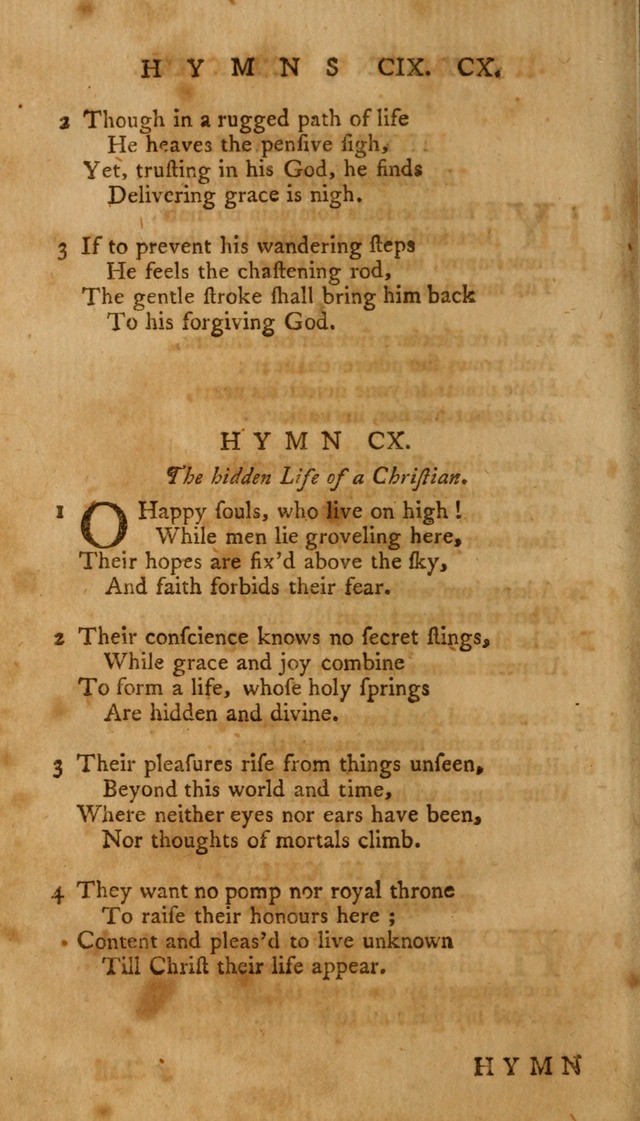 HYMNS CIX. CX.
2 Though in a rugged path of life
He heaves the penſive ſigh,
Yet, truſting in his God, he finds
Delivering grace is nigh.
3 If to prevent his wandering ſteps
He feels the chaſtening rod,
The gentle ſtroke ſhall bring him back
To his forgiving God.
HYMN CX.
The hidden Life of a Chriſtian.
1 O Happy ſouls, who live on high!
While men lie groveling here,
Their hopes are fix'd above the ſky,
And faith forbids their fear.
2 Their conſcience knows no ſecret ſtings,
While grace and joy combine
To form a life, whoſe holy ſprings
Are hidden and divine.
3 Their pleaſures riſe from things unſeen,
Beyond this world and time,
Where neither eyes nor ears have been,
Nor thoughts of mortals climb.
4 They want no pomp nor royal throne
To raiſe their honours here;
Content and pleas'd to live unknown
Till Chriſt their life appear.
HYMN